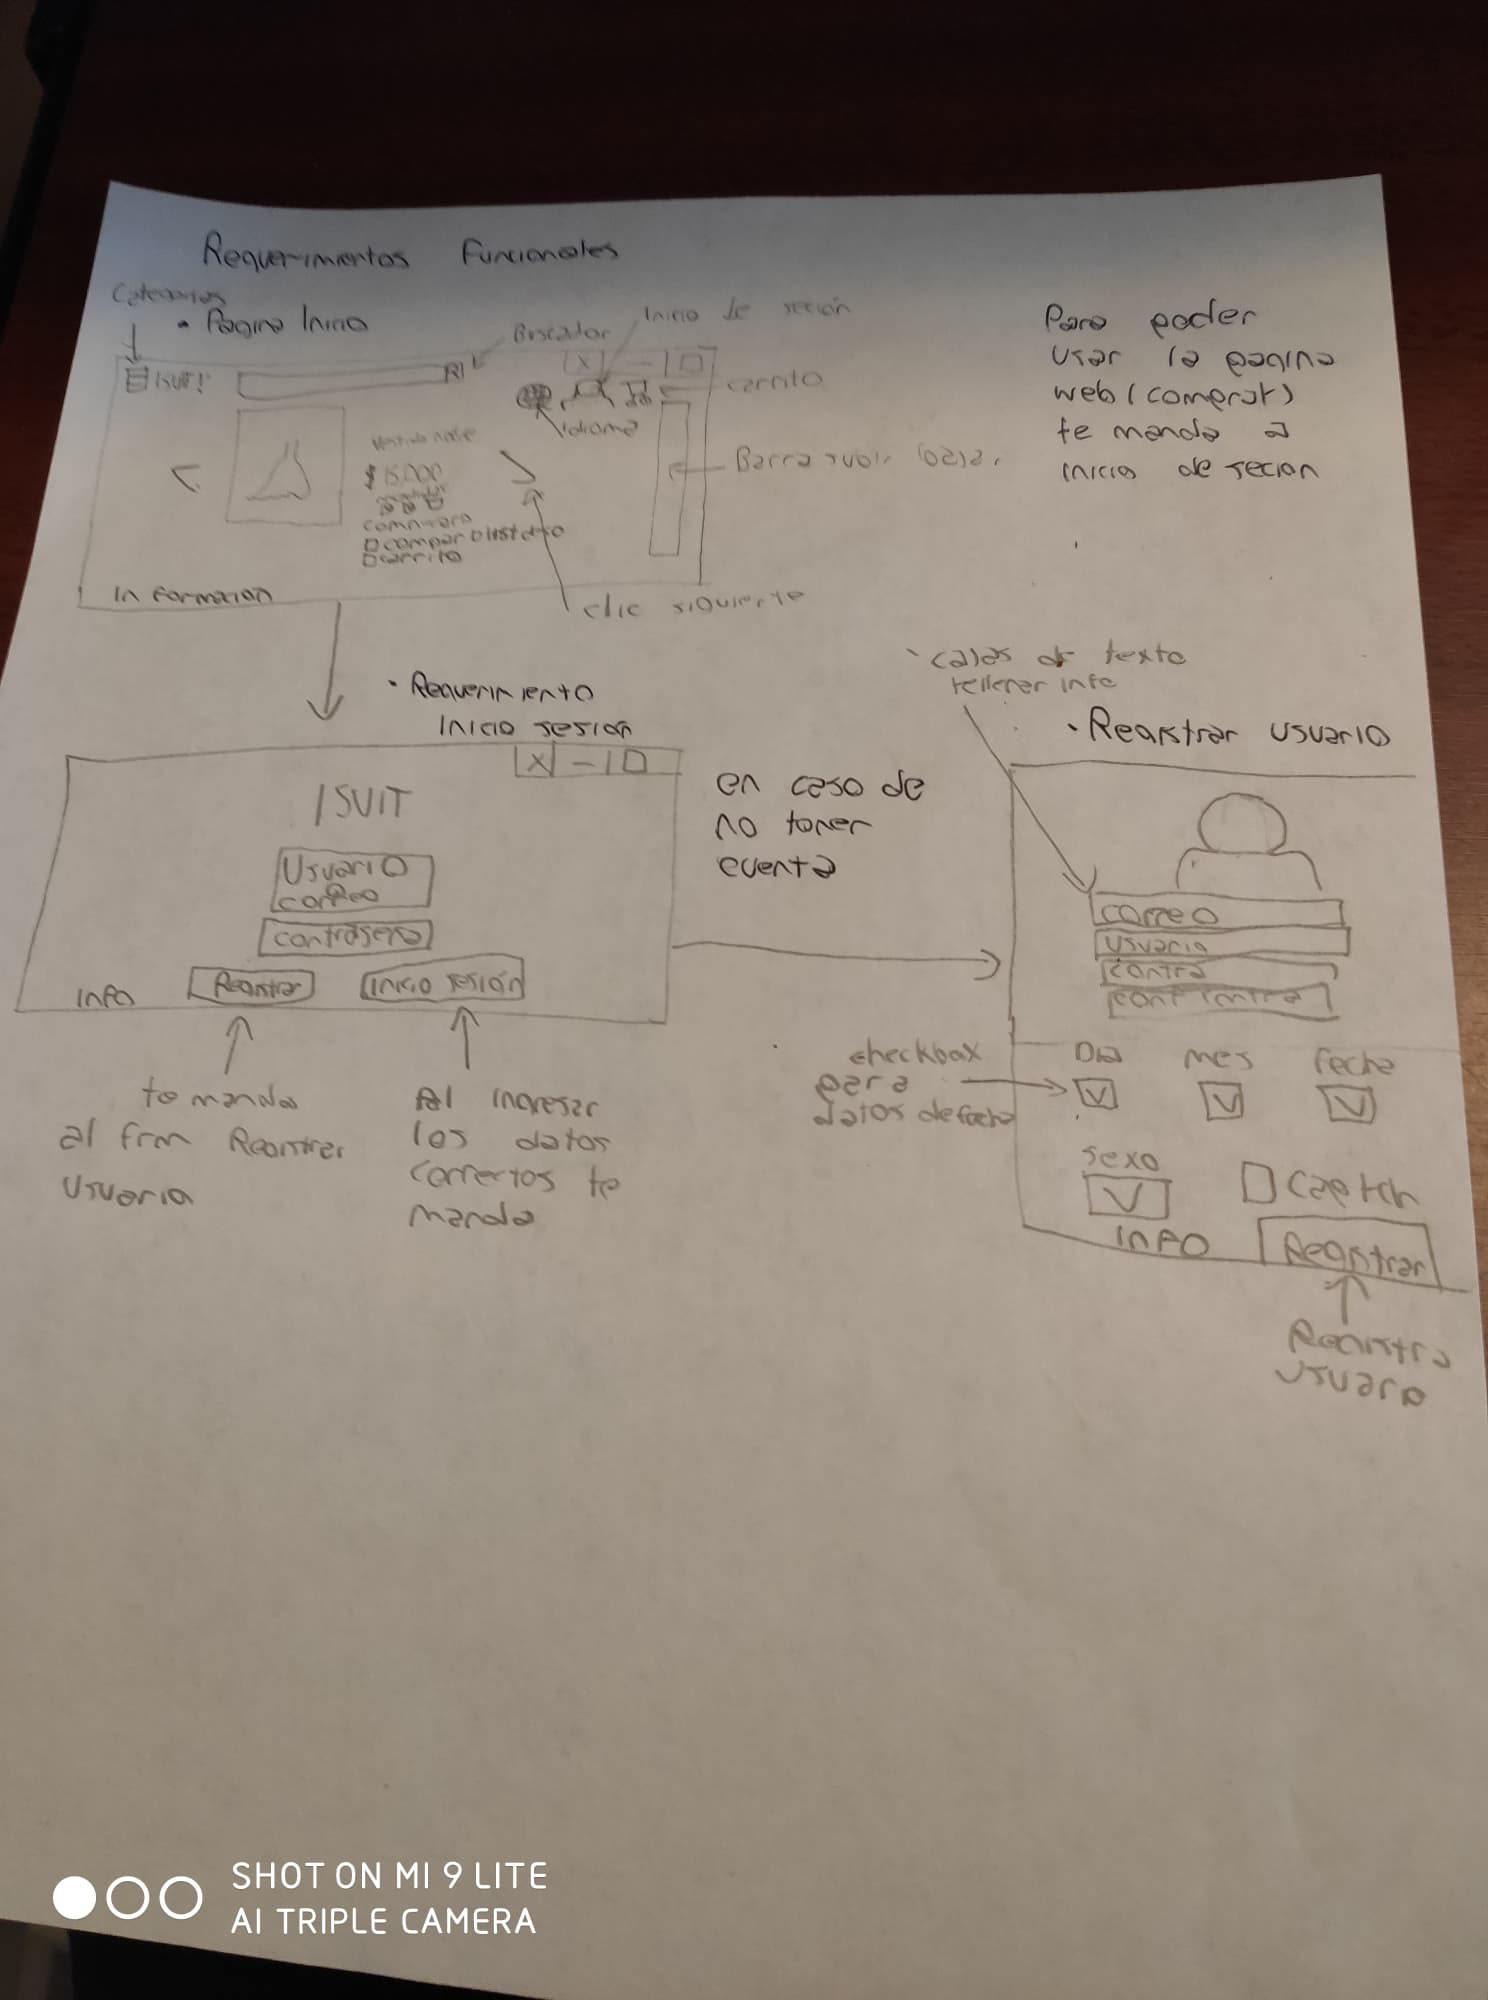 Requerimientos Funcionales
Categorias
• Pagina Inicio
Buscador
Inicio de seción
ISUIT
X - □
carrito
idioma
Barra subir baja
$ 15.000
carrito
Informacion
clic siguiente
Para poder
usar la pagina
web (comprar)
te manda a
inicio de secion
• Requerimiento
Inicio sesion
X - □
ISUIT
Usuario
correo
contraseña
Registrar
Inicio sesión
INFO
te manda
al frm Registrar
Usuario
Al ingresar
los datos
correctos te
manda
en caso de
no tener
cuenta
• cajas de texto
rellenar info
• Registrar usuario
correo
usuario
contra
checkbox
para
datos de fecha
Dia
mes
fecha
sexo
captch
INFO
Registrar
Registra
usuario
SHOT ON MI 9 LITE
AI TRIPLE CAMERA